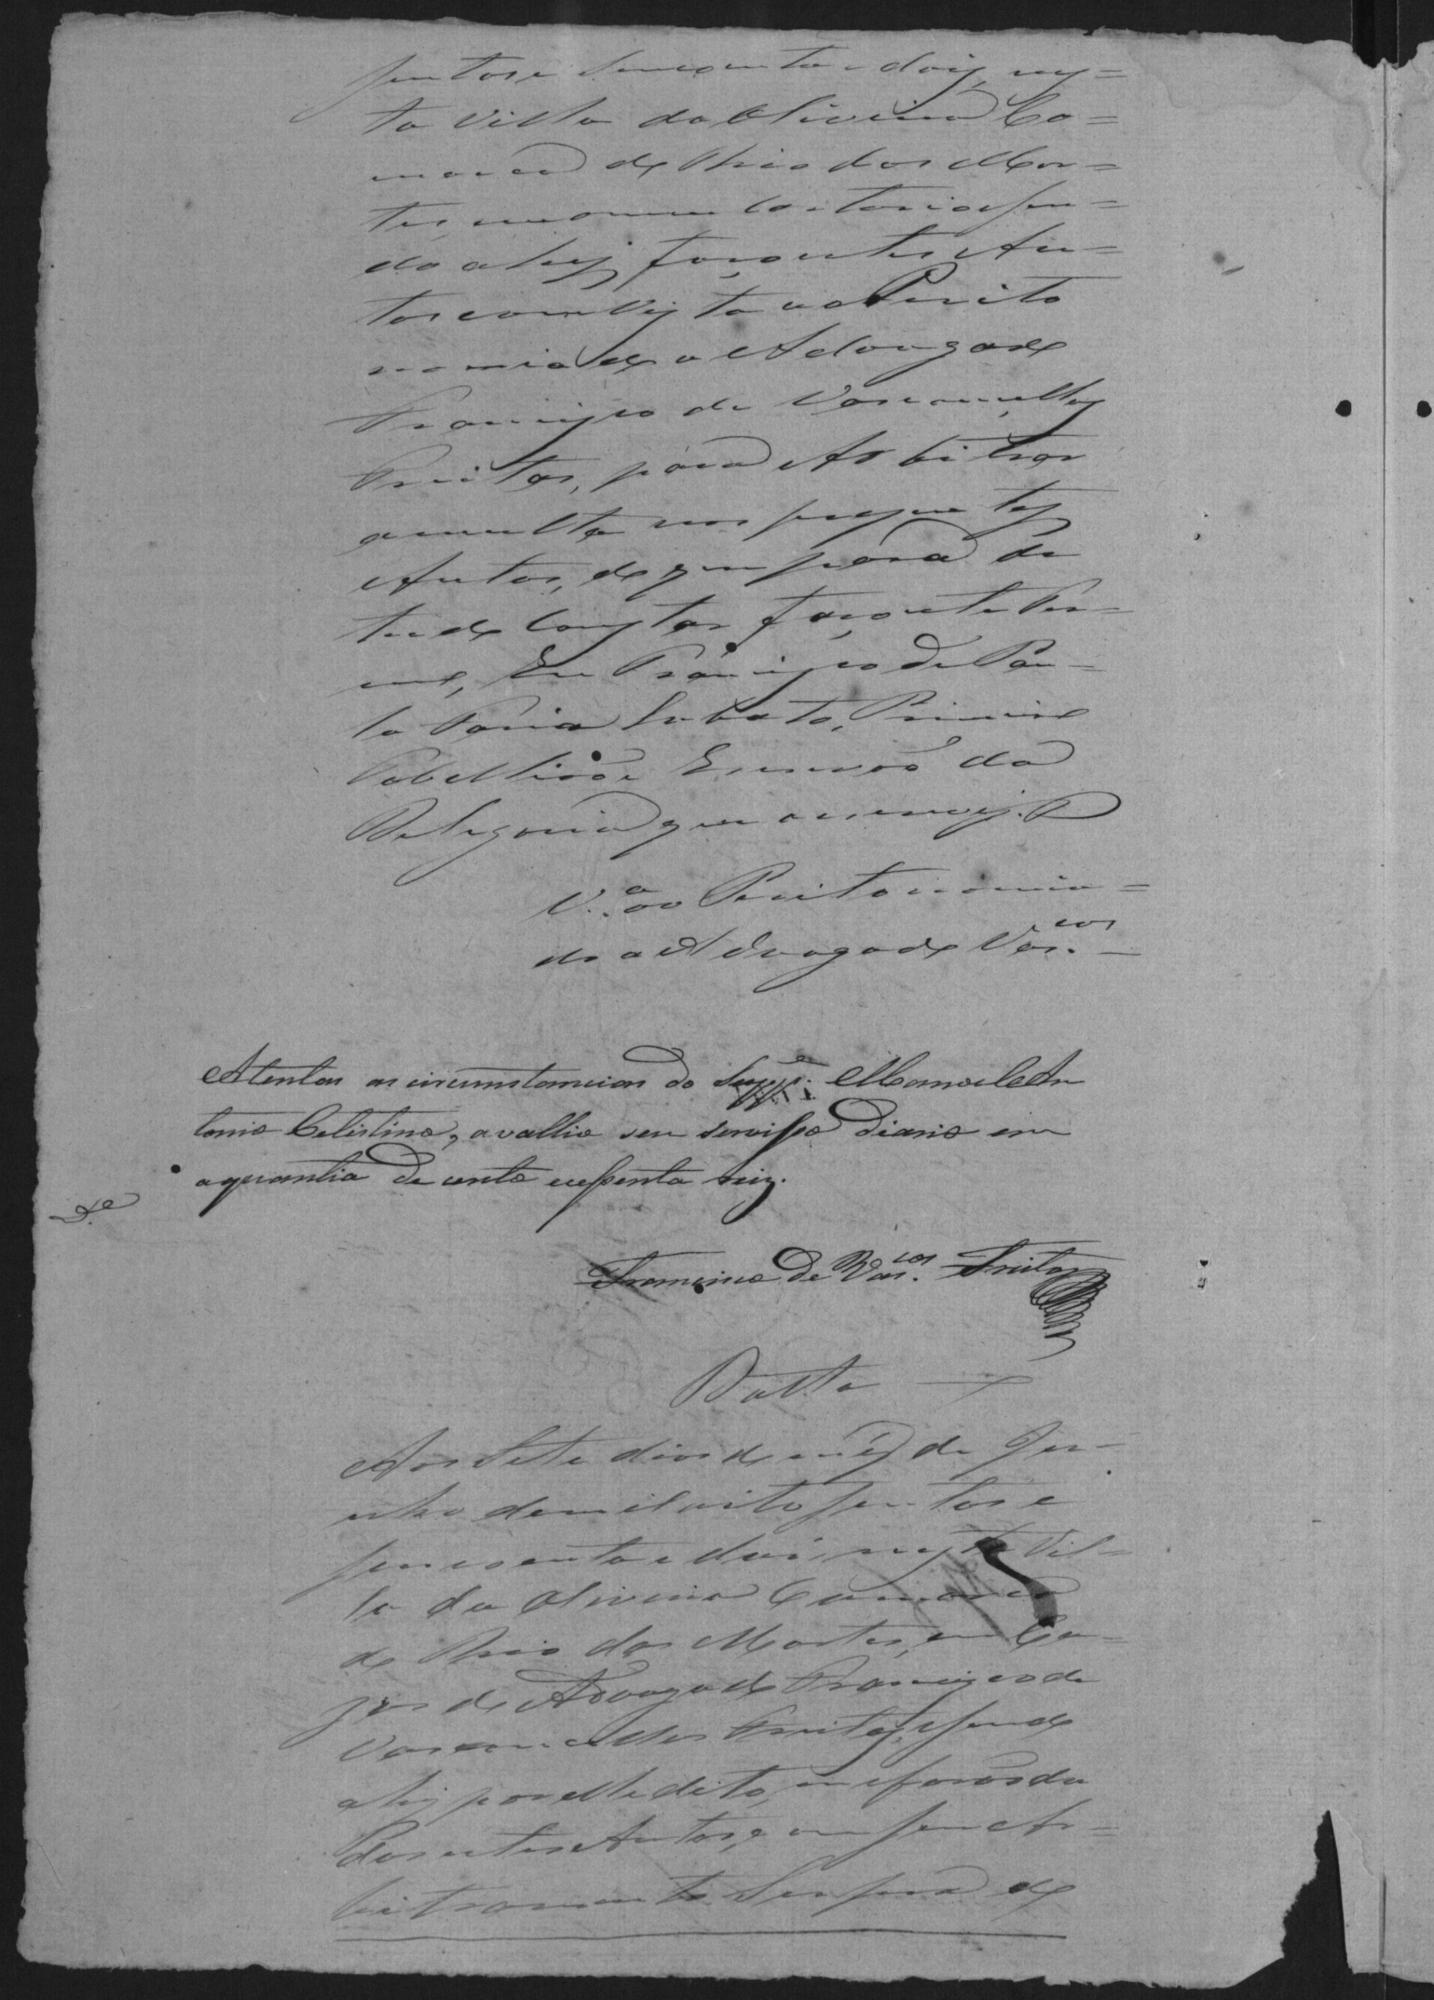 sentos e secenta e dois, nes=
ta Villa da Oliveira Co=
marca do Rio das Mor=
tes, em meu Cartorio e sen=
do ahi faço estes Au=
tos com vista ao Perito
nomiado o Advogado
Francisco de Vasconcellos
Freitas, para Arbitrar
a multa nos presentes
Autos, do que para de
tudo constar faço este Ter=
mo, Eu Francisco de Pau=
la Faria Lobato, Primeiro
Tabellião e Escrivão da
Delegacia que o escrevi. D
V.ᵃ ao Perito nomia=
do o Advogado Vas.ᶜᵒˢ
Atentas as circumstancias do Supp.ᵉ Manoel An
tonio Celestino, avallio seu serviço diario em
a quantia de cento e sessenta reis.
Francisco de Vas.ᶜᵒˢ Freitas
Datta
Aos Sete dias do mês de Ju=
nho de mil oito sentos e
secenta e dois, nesta Vil=
la da Oliveira Comarca
do Rio das Mortes, em Ca=
zas do Advogado Francisco de
Vasconcellos Freitas, e sendo
ahi por elle dito, me forão da
dos estes Autos, com seu Ar=
bitramento Supra do